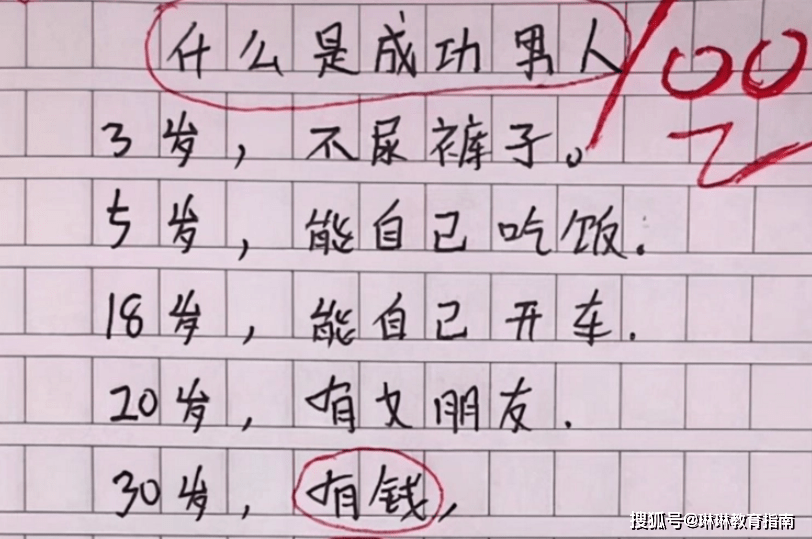 什么是成功男人
100
3岁，不尿裤子。
5岁，能自己吃饭.
18岁，能自己开车.
20岁，有女朋友.
30岁，有钱，
搜狐号@琳琳教育指南